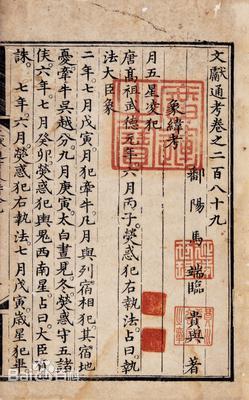 文獻通考卷之二百八十九
鄱陽馬端臨貴與著
象緯考
月五星凌犯
唐高祖武德元年六月丙子熒惑犯右執法占曰執
法大臣象
二年七月戊寅月犯牽牛凡月與列宿相犯其宿地
憂牽牛吳越分九月庚寅太白晝見冬熒惑守五諸
侯六年七月癸卯熒惑犯輿鬼西南星占曰大臣有
誅七年六月熒惑犯右執法七月戊寅歲星犯畢
Baidu百科